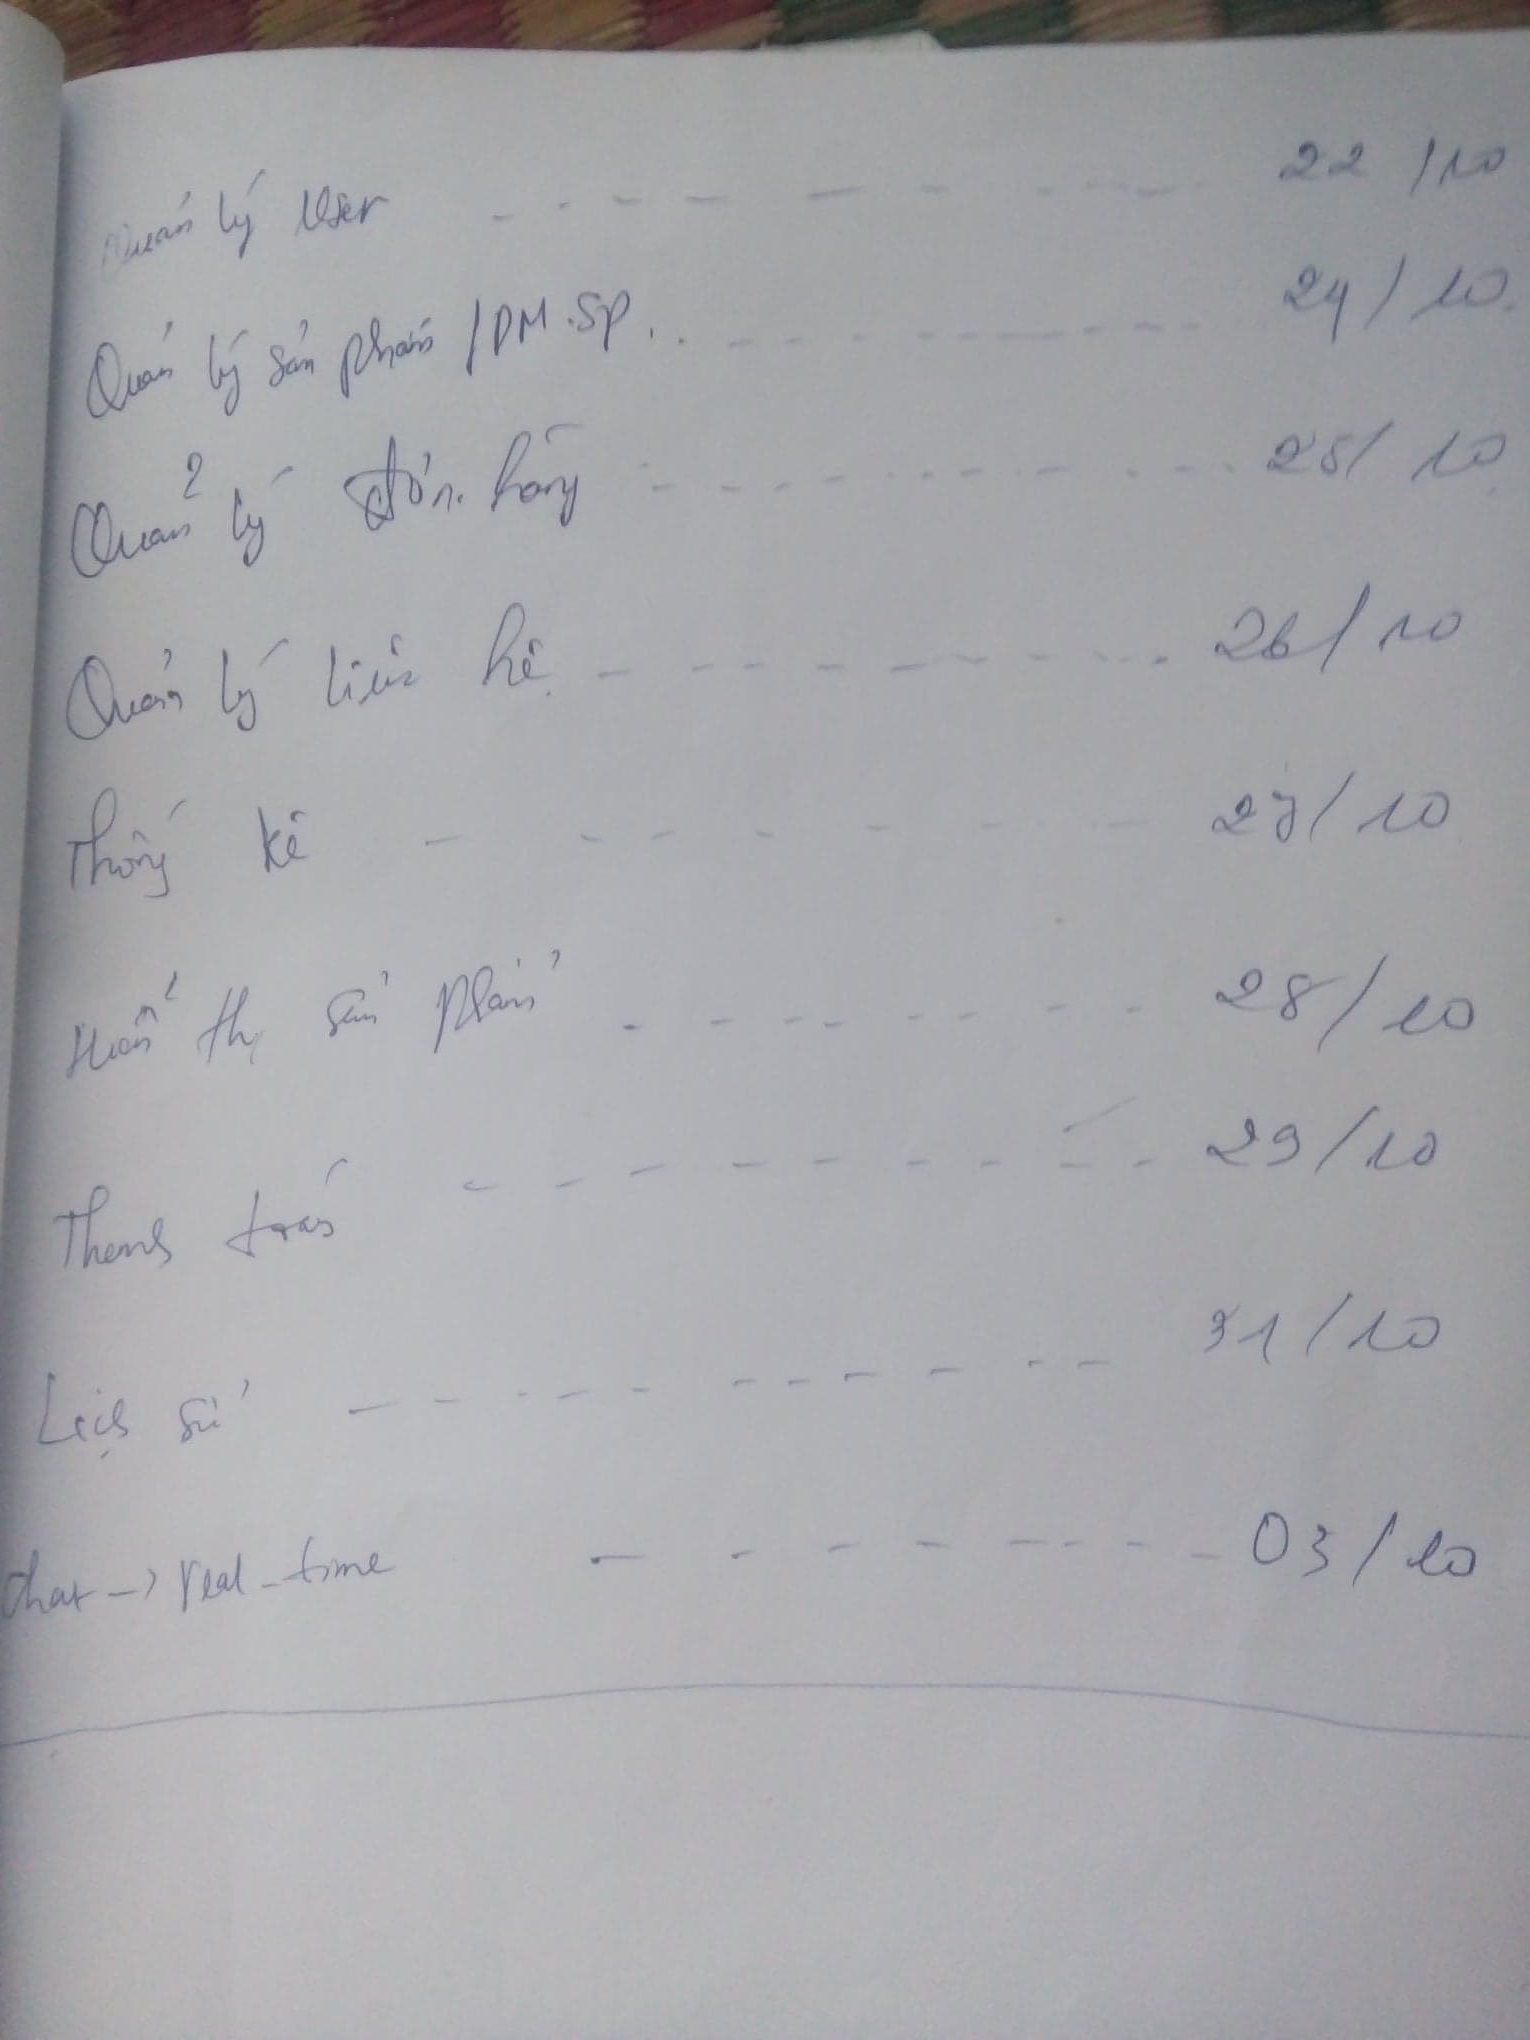 Quản lý User - - - - - - - - 22/10
Quản lý sản phẩm / DM.SP. - - - - - - - 24/10.
Quản lý đơn hàng - - - - - - - - 25/10
Quản lý liên hệ - - - - - - - - 26/10
Thống kê - - - - - - - 27/10
Hiển thị sản phẩm - - - - - - - 28/10
Thanh toán - - - - - - - - 29/10
Lịch sử - - - - - - - - - - 31/10
chat -> real-time - - - - - - - - 03/10